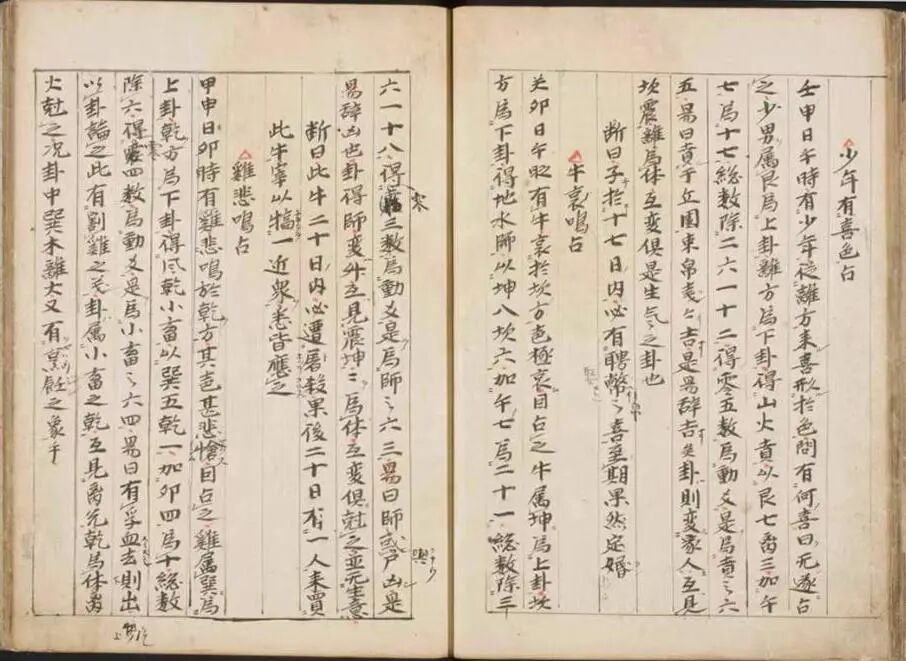 少年有喜色占
壬申日午時有少年從離方来喜形於色問有何喜曰无遂占
之少男属艮為上卦離方為下卦得山火賁以艮七离三加午
七為十七総数除二六一十二得零五数為動爻是為賁之六
五易曰賁于丘園束帛戔々吉是易辞吉矣卦則变家人互見
坎震離為体互变俱是生气之卦也
断曰子於十七日内必有聘幣之喜至期果然定婚
牛哀鳴占
癸卯日午时有牛哀於坎方声極哀因占之牛属坤為上卦坎
方為下卦得地水師以坤八坎六加午七為二十一総数除三
六一十八得零三数為動爻是為師之六三易曰師或輿尸凶是
易辞凶也卦得師变升互見震坤二為体互变俱尅之並无生意
断曰此牛二十日内必遭屠殺果後二十日有一人来買
此牛宰以犒一近衆悉皆應之
雞悲鳴占
甲申日卯時有雞悲鳴於乾方其声甚悲愴因占之雞属巽為
上卦乾方為下卦得風乾小畜以巽五乾一加卯四為十総数
除六得零四数為動爻是為小畜之六四易曰有孚血去則出
以卦論之此有割雞之義卦属小畜之乾互見离兌乾為体离
火尅之况卦中巽木離火又有烹飪之象乎